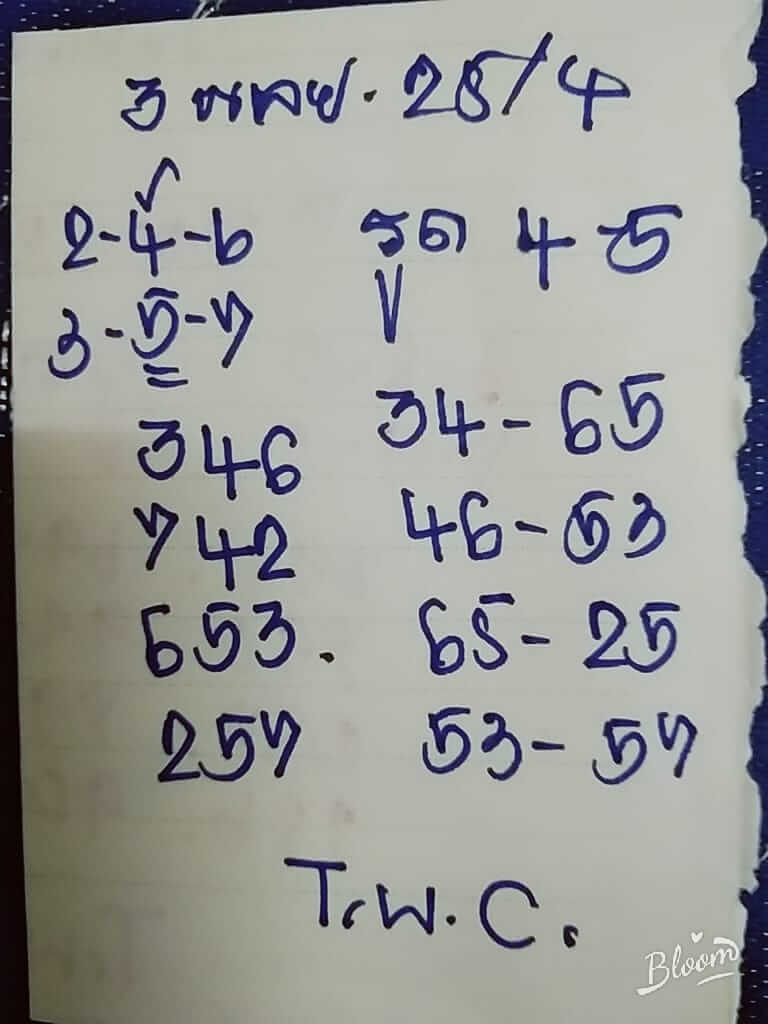 3 หลาย. 25/4
2-4-6
3-5-7
346
742
653.
257
รูด 4-5
34-65
46-53
65-25
53-57
T.พ.C.
Bloom